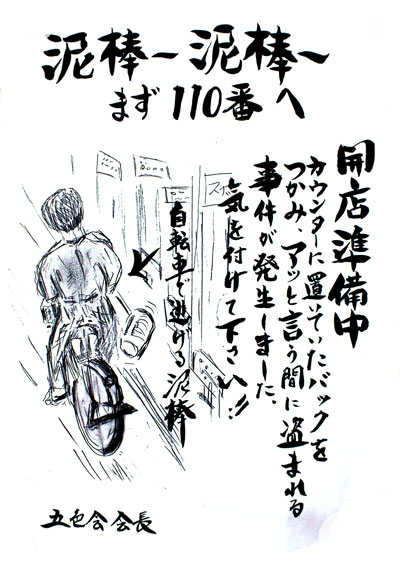 泥棒〜泥棒〜
まず110番へ
開店準備中
カウンターに置いていたバックを
つかみ、アッと言う間に盗まれる
事件が発生しました、
気を付けて下さい!!
自転車で逃げる泥棒
スナ
五色会会長